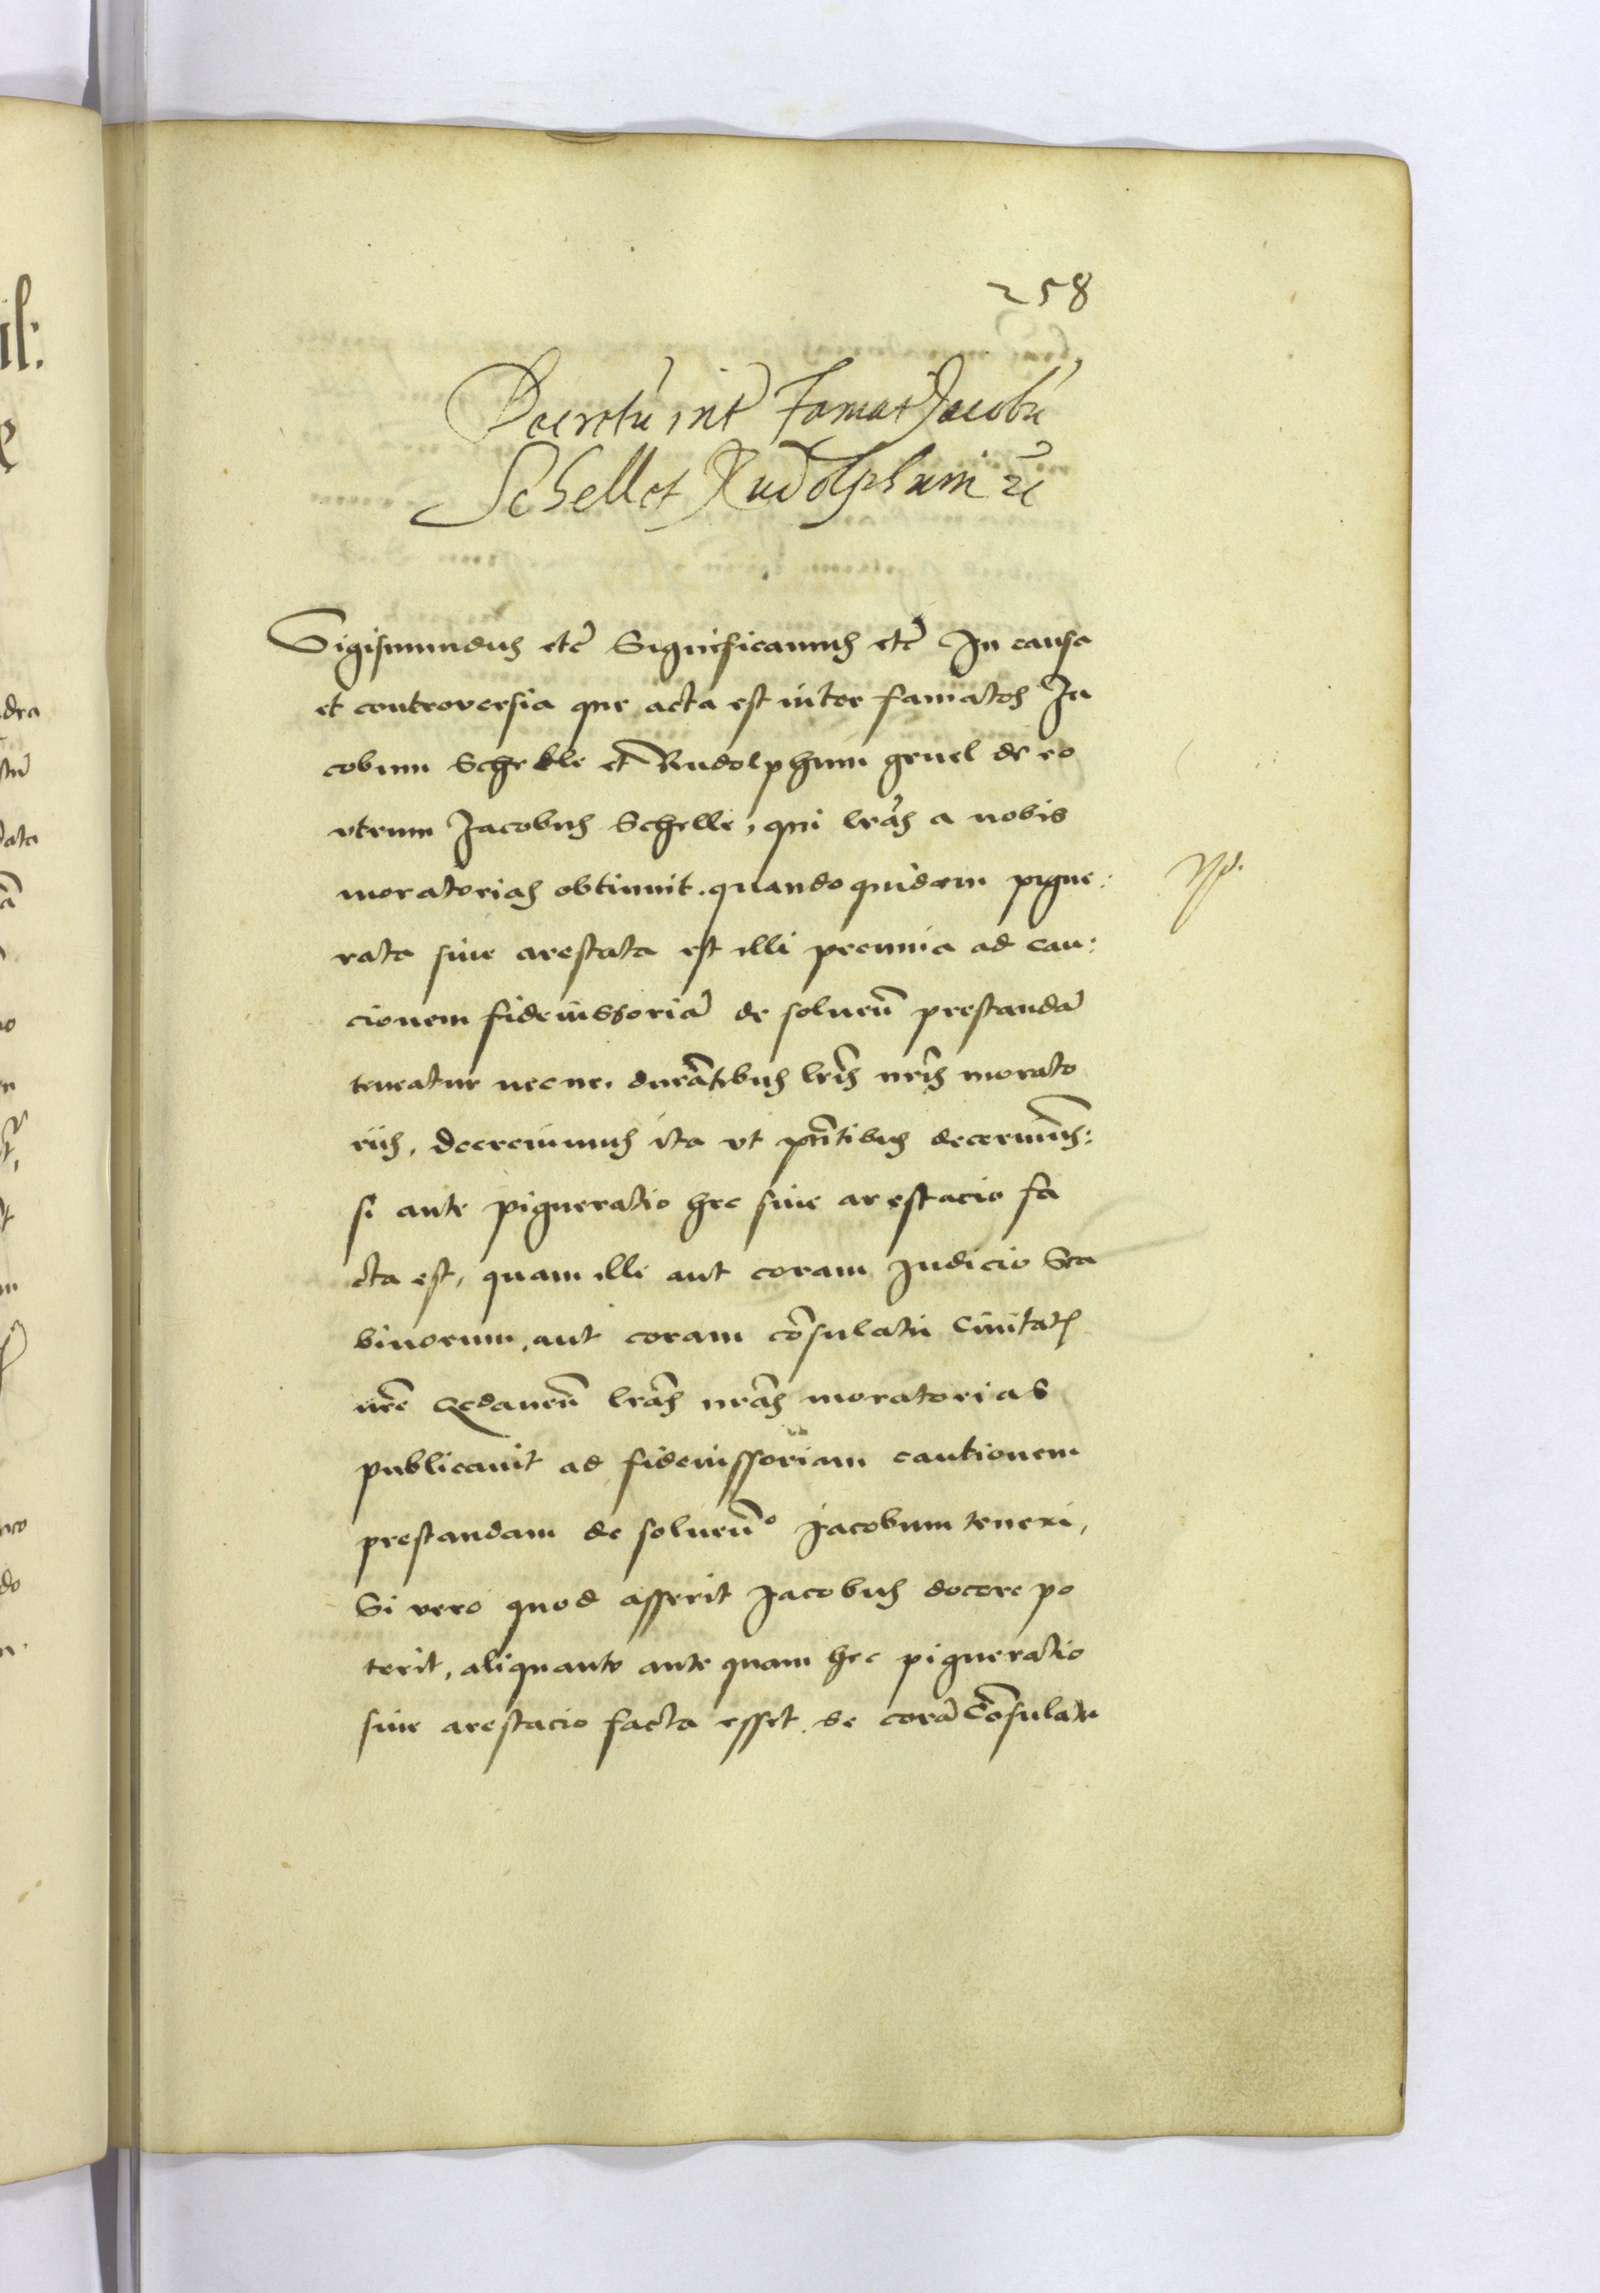 258
Decretu int Famat Jacobu
Schell et Rudolphum etc
Sigismundus etc Significamus etc In causa
et controversia que acta est inter famatos Ja
cobum Schelle et Rudolphum gruel de eo
utrum Jacobus Schelle, qui lras a nobis
moratorias obtinuit. quandoquidem pigne:
rata sive arestata est illi pecunia ad cau:
cionem fideiussoria de soluen prestanda
teneatur nec ne. durātibus lris nris morato
riis, decrevimus ita ut pntibus decernims:
si ante pigneratio hec sive arestacio fa
cta est, quam ille aut coram Judicio Sca
binorum, aut coram cōsulatu Civitatis
nre Gedanen lras nras moratorias
publicavit ad fideiussoriam cautionem
prestandam de soluen° Jacobum teneri,
Si vero quod asserit Jacobus docere po
terit, aliquanto ante quam hec pigneratio
sive arestacio facta esset. se corā Cōsulatu